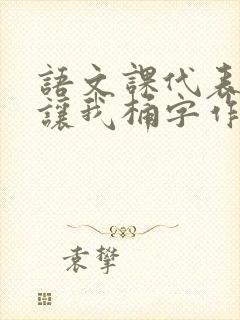 語文課代表
讓我桶字作
袁攀